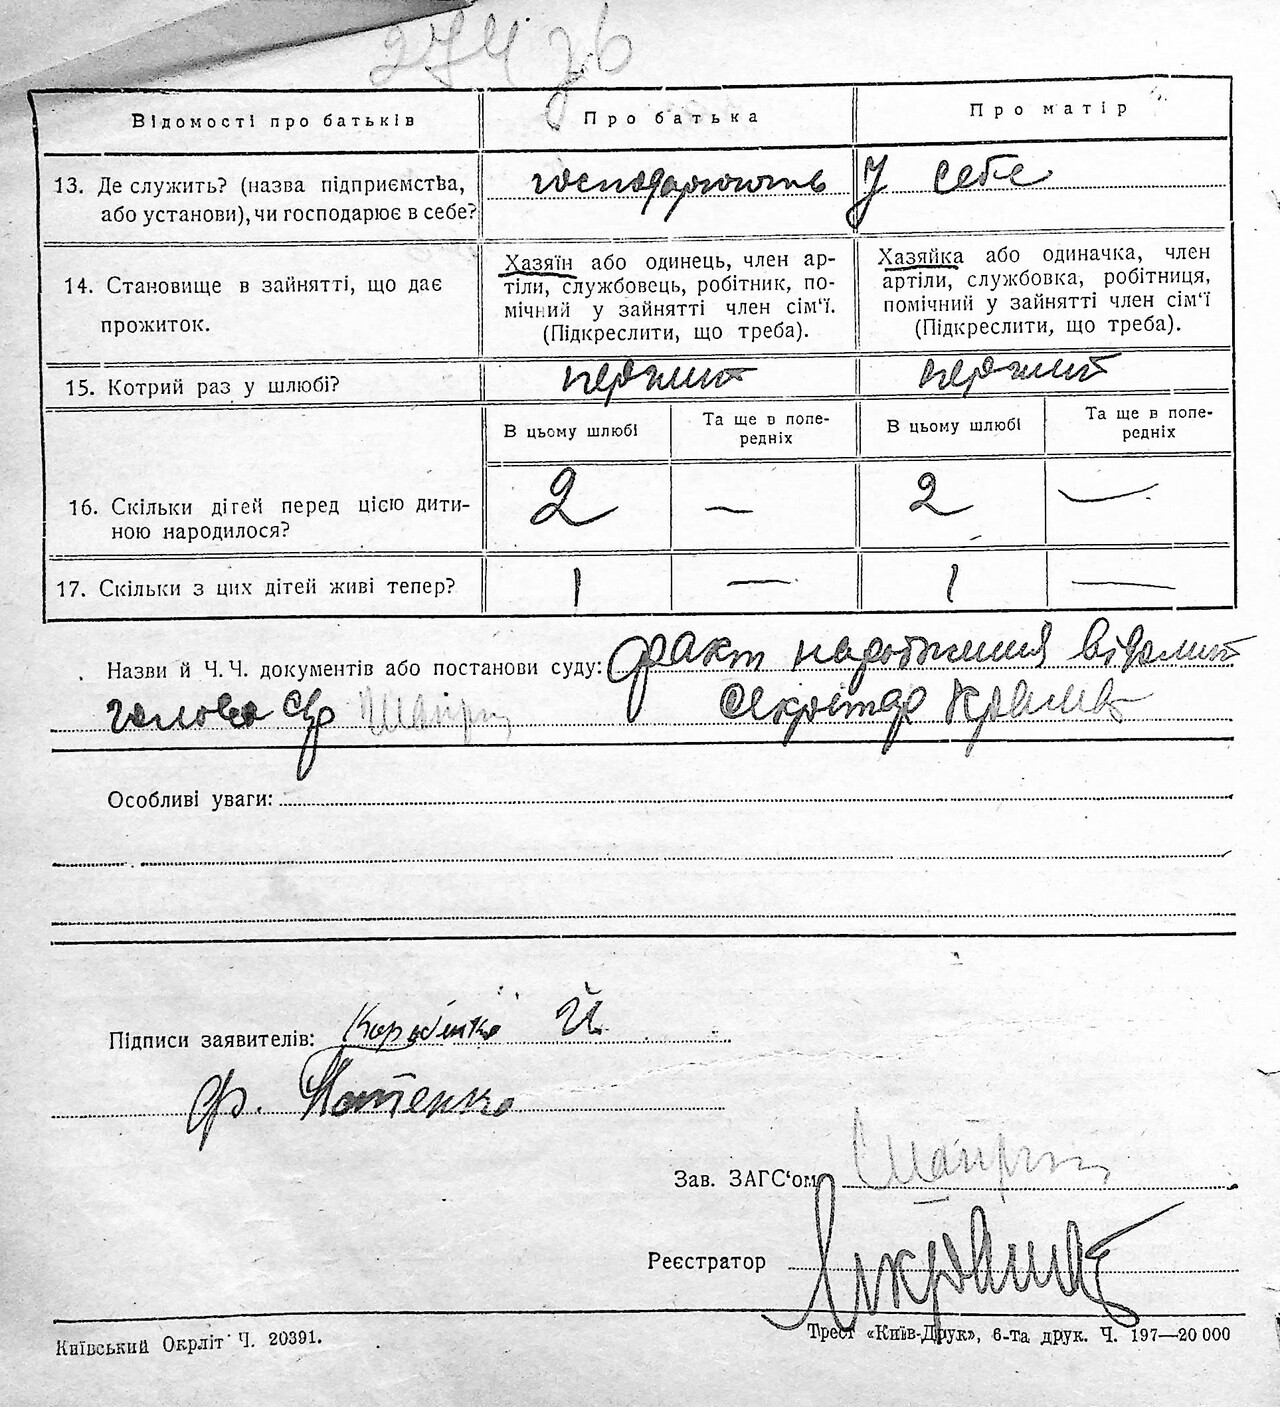 274 зв
Відомості про батьків
Про батька
Про матір
13. Де служить? (назва підприємства,
або установи), чи господарює в себе?
господарюють у себе
14. Становище в зайнятті, що дає
прожиток.
Хазяїн або одинець, член ар-
тіли, службовець, робітник, по-
мічний у зайнятті член сім‘ї.
(Підкреслити, що треба).
Хазяйка або одиначка, член
артіли, службовка, робітниця,
помічний у зайнятті член сім‘ї
(Підкреслити, що треба).
15. Котрий раз у шлюбі?
первий первий
В цьому шлюбі
Та ще в попе-
редніх
В цьому шлюбі
Та ще в попе-
редніх
16. Скільки дітей перед цією дити-
ною народилося?
2 — 2 —
17. Скільки з цих дітей живі тепер?
1 — 1 —
Назви й Ч. Ч. документів або постанови суду: факт народження відомий
голова с/р секретар
Особливі уваги:
Підписи заявителів: Й.
Ф.
Зав. ЗАГС‘ом
Реєстратор
Київський Окрліт Ч. 20391.
Трест «Київ-Друк», 6-та друк. Ч. 197—20 000